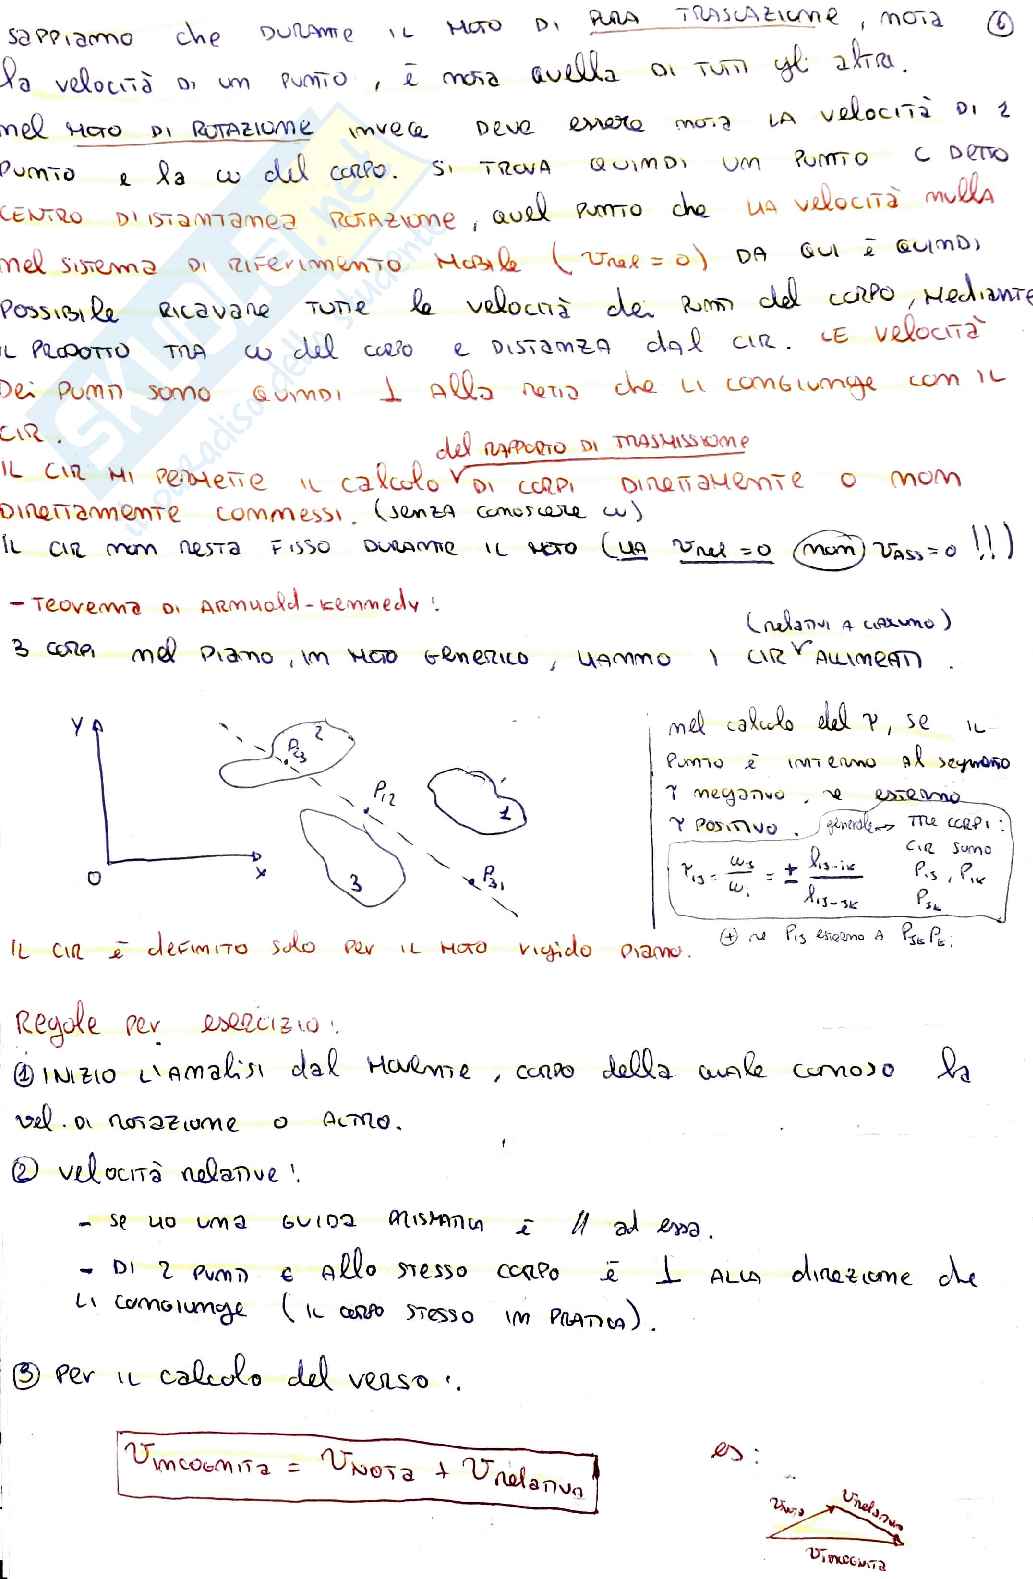 sappiamo che DURANTE IL MOTO DI PURA TRASLAZIONE, nota 6
la velocità DI un PUNTO, è nota quella DI TUTTI gli altri.
nel MOTO DI ROTAZIONE invece DEVE essere nota LA velocità DI 1
PUNTO e la ω del CORPO. SI TROVA QUINDI UN PUNTO C DETTO
CENTRO DI ISTANTANEA ROTAZIONE, quel PUNTO che HA velocità nulla
nel SISTEMA DI RIFERIMENTO MOBILE (Vrel = 0) DA QUI è QUINDI
POSSIBILE RICAVARE TUTTE le velocità dei PUNTI del CORPO, MEDIANTE
IL PRODOTTO TRA ω del CORPO e DISTANZA dal CIR. LE velocità
Dei PUNTI sono QUINDI ⊥ Alla retta che LI congiunge con IL
CIR.
del RAPPORTO DI TRASMISSIONE
IL CIR MI PERMETTE IL calcolo DI CORPI DIRETTAMENTE O NON
DIRETTAMENTE connessi. (senza conoscere ω)
IL CIR non resta FISSO DURANTE IL MOTO (HA Vrel = 0 non VASS = 0 !!)
- Teorema DI ARNUALD-Kennedy:
(relativi A CIASCUNO)
3 CORPI nel PIANO, IN MOTO GENERICO, HANNO I CIR ALLINEATI.
Y
O
X
2
P23
P12
1
3
P31
nel calcolo del τ, se IL
PUNTO è INTERNO Al segmento
τ negativo, se esterno
τ POSITIVO. generale → TRE CORPI:
CIR sono
Pij, Pik
Pjk
τij = ωj/ωi = ± lij-ik / lij-jk
(+) se Pij esterno A Pjk Pik
IL CIR è definito solo per IL MOTO rigido piano.
Regole per esercizio:
① INIZIO L'ANALISI dal MOVENTE, CORPO della quale conosco la
vel. DI rotazione o ALTRO.
② velocità relative:
- se HO una GUIDA PRISMATICA è // ad essa.
- DI 2 PUNTI ∈ Allo stesso CORPO è ⊥ ALLA direzione che
LI congiunge (IL CORPO STESSO IN PRATICA).
③ Per IL calcolo del verso:
VINCOGNITA = VNOTA + Vrelativa
es:
Vnota
Vrelativa
VINCOGNITA
SKUOLA.net
il paradiso dello studente